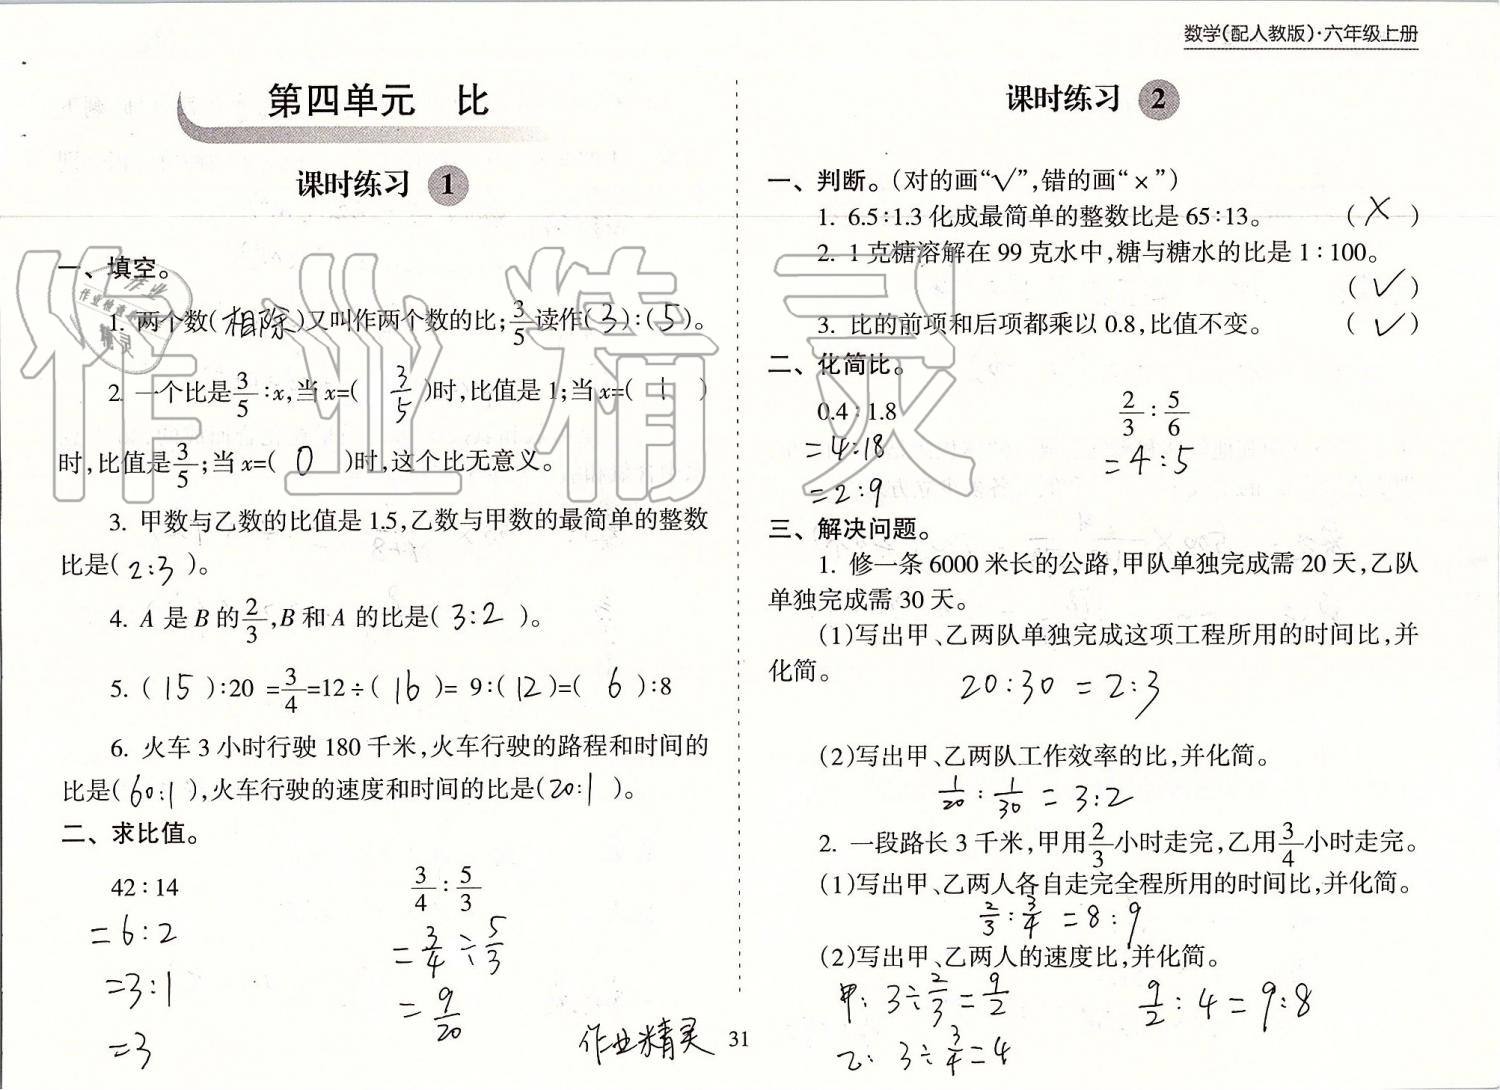 数学(配人教版)·六年级上册
第四单元 比
课时练习 1
一、填空。
1. 两个数(相除)又叫作两个数的比;3/5读作(3):(5)。
2. 一个比是3/5:x,当x=( 3/5 )时,比值是1;当x=( 1 )
时,比值是3/5;当x=( 0 )时,这个比无意义。
3. 甲数与乙数的比值是1.5,乙数与甲数的最简单的整数
比是( 2:3 )。
4. A是B的2/3,B和A的比是( 3:2 )。
5. ( 15 ):20 =3/4=12÷( 16 )= 9:( 12 )=( 6 ):8
6. 火车3小时行驶180千米,火车行驶的路程和时间的
比是( 60:1 ),火车行驶的速度和时间的比是( 20:1 )。
二、求比值。
42:14
=6:2
=3:1
=3
3/4:5/3
=3/4÷5/3
=9/20
作业精灵
31
课时练习 2
一、判断。(对的画“√”,错的画“×”)
1. 6.5:1.3化成最简单的整数比是65:13。 ( × )
2. 1克糖溶解在99克水中,糖与糖水的比是1:100。
( √ )
3. 比的前项和后项都乘以0.8,比值不变。 ( √ )
二、化简比。
0.4:1.8
=4:18
=2:9
2/3:5/6
=4:5
三、解决问题。
1. 修一条6000米长的公路,甲队单独完成需20天,乙队
单独完成需30天。
(1)写出甲、乙两队单独完成这项工程所用的时间比,并
化简。
20:30 =2:3
(2)写出甲、乙两队工作效率的比,并化简。
1/20:1/30 = 3:2
2. 一段路长3千米,甲用2/3小时走完,乙用3/4小时走完。
(1)写出甲、乙两人各自走完全程所用的时间比,并化简。
2/3:3/4 =8:9
(2)写出甲、乙两人的速度比,并化简。
甲: 3÷2/3=9/2 9/2:4=9:8
乙: 3÷3/4=4
作业精灵